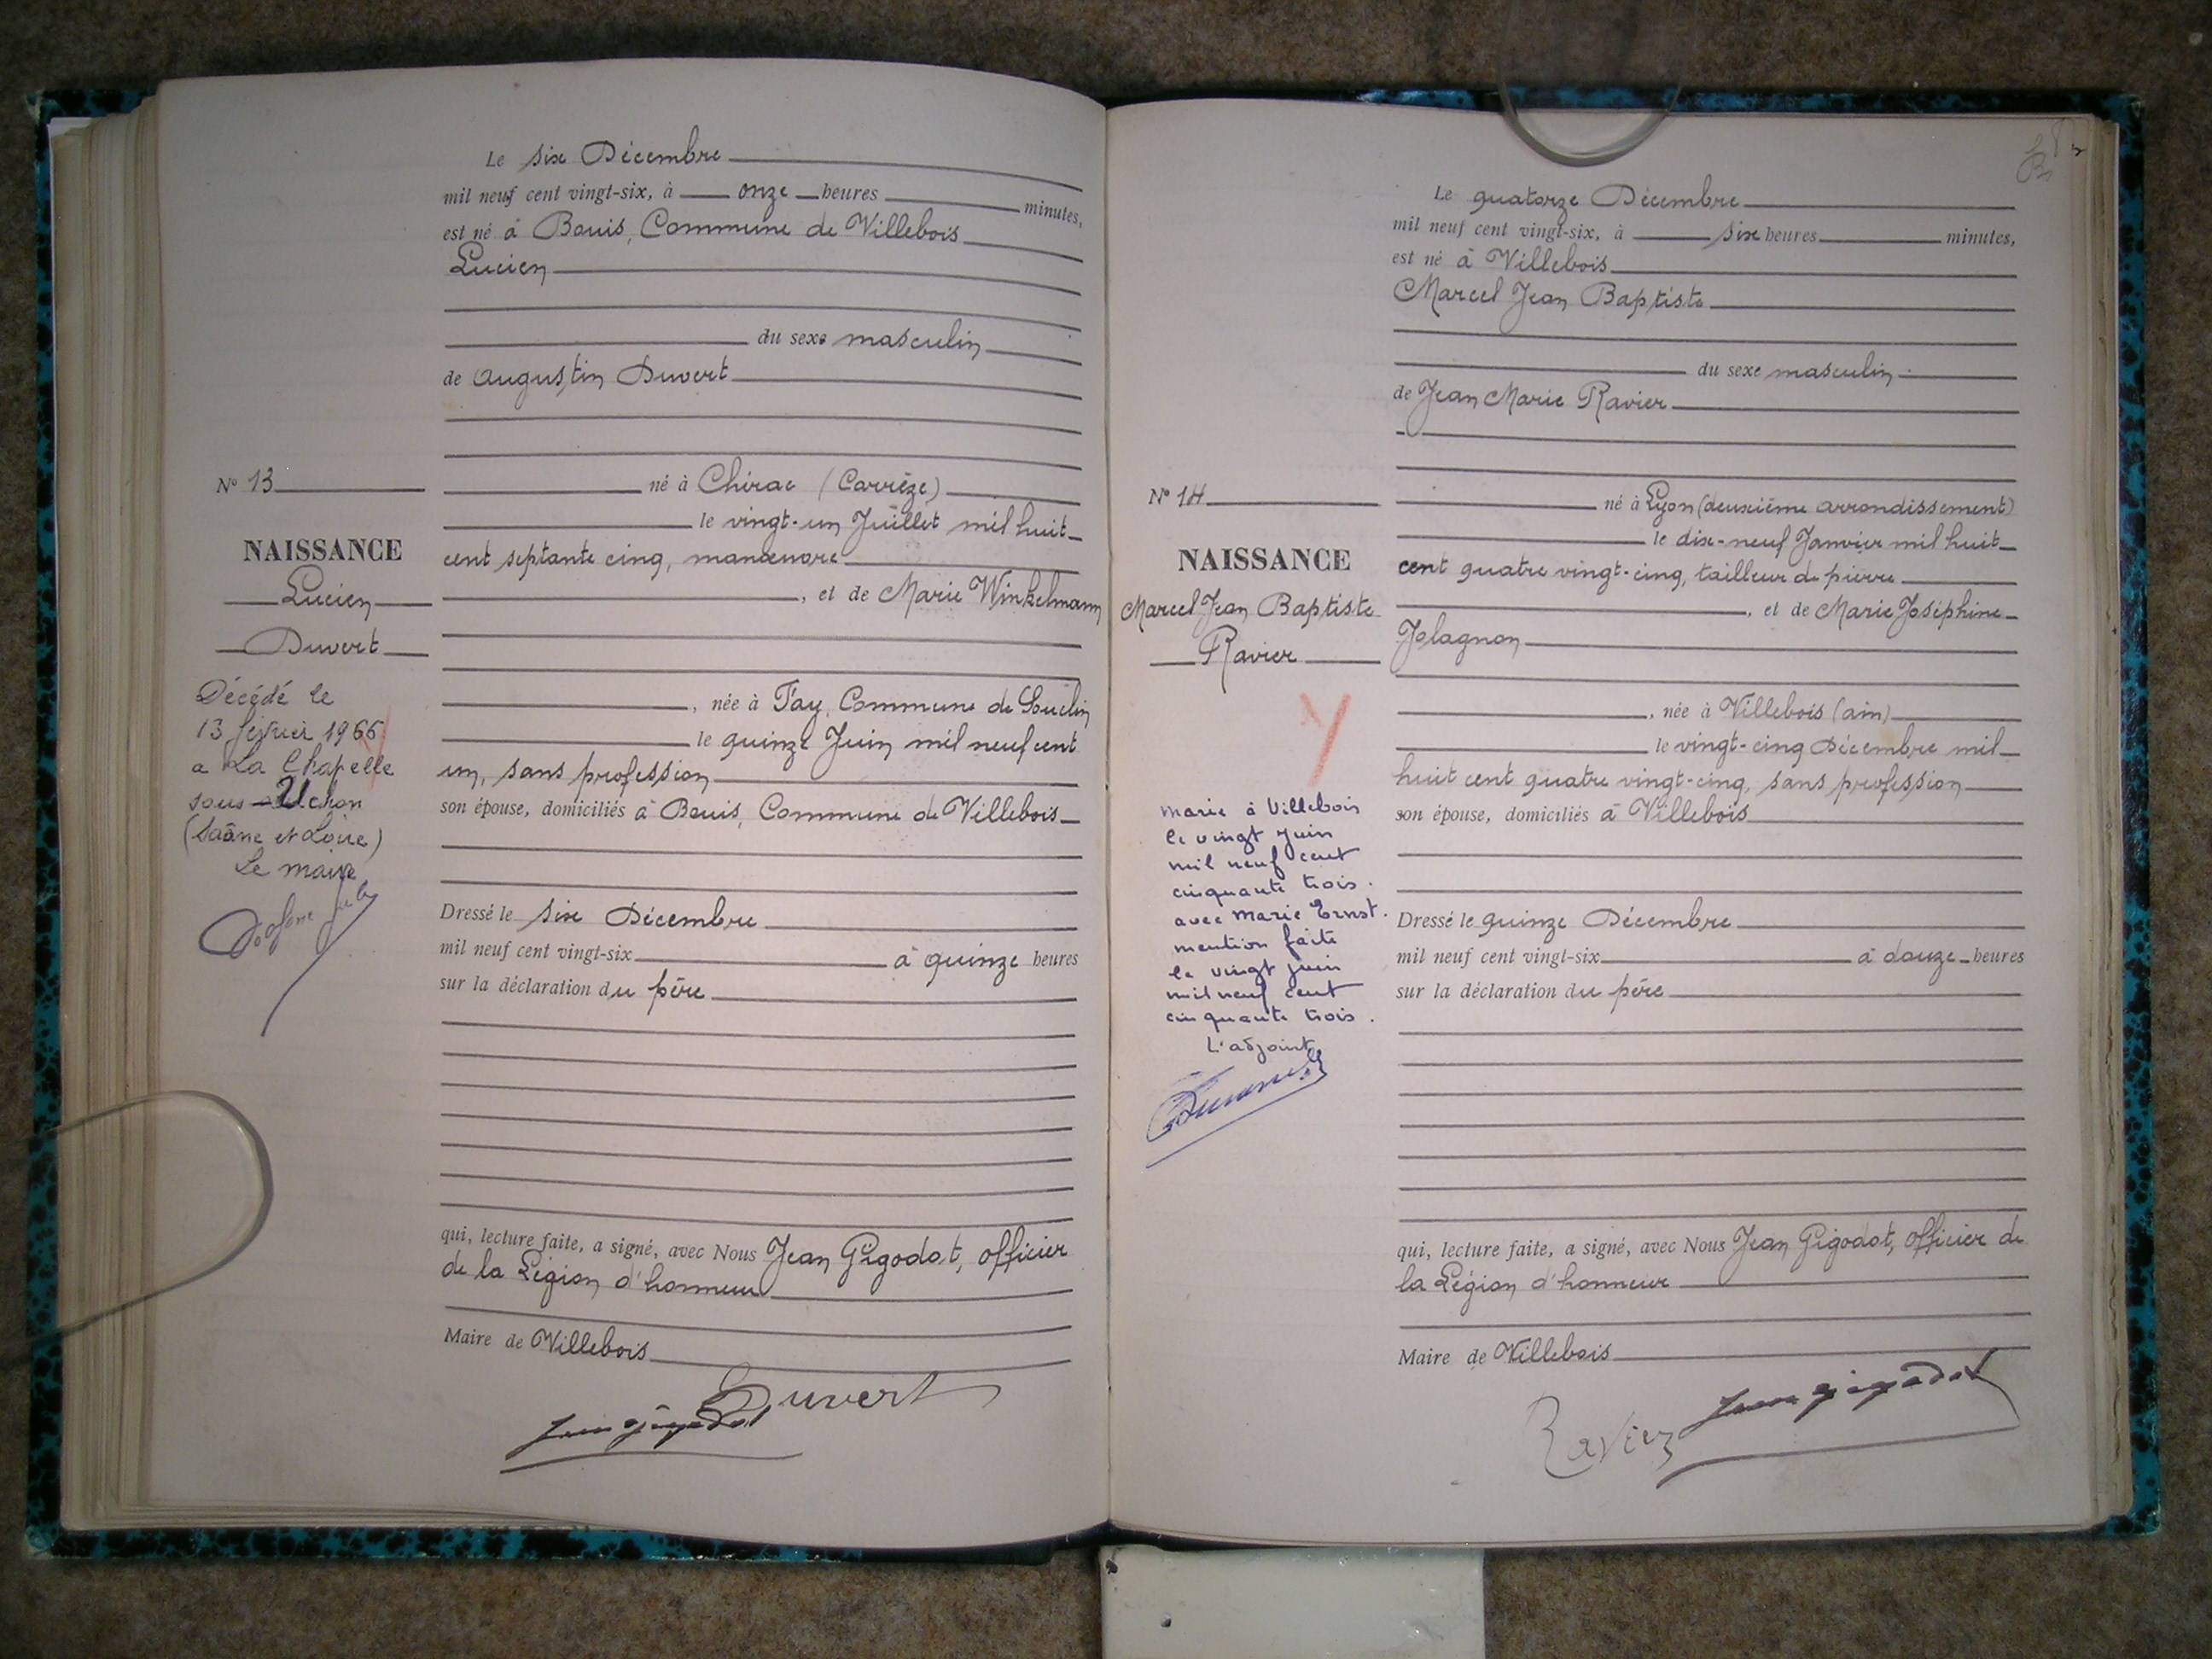 Le six Décembre
mil neuf cent vingt-six, à onze heures minutes,
est né à Bouis, Commune de Villebois
Lucien
du sexe masculin
de Augustin Duvert
N° 13
né à Chirac (Corrèze)
le vingt-un Juillet mil huit
NAISSANCE
cent septante cinq, manœuvre
Lucien
, et de Marie Winkelmann
Duvert
Décédé le
13 février 1966
a La Chapelle
sous Uchon
(Saône et Loire)
Le maire
, née à Fay, Commune de Souclin
le quinze Juin mil neuf cent
un, sans profession
son épouse, domiciliés à Bouis, Commune de Villebois
Dressé le six Décembre
mil neuf cent vingt-six à quinze heures
sur la déclaration du père
qui, lecture faite, a signé, avec Nous Jean Gigodot, officier
de la Légion d'honneur
Maire de Villebois
Duvert
Jean Gigodot
Le quatorze Décembre
mil neuf cent vingt-six, à six heures minutes,
est né à Villebois
Marcel Jean Baptiste
du sexe masculin
de Jean Marie Ravier
N° 14
né à Lyon (deuxième arrondissement)
le dix-neuf Janvier mil huit
NAISSANCE
cent quatre vingt-cinq, tailleur de pierre
Marcel Jean Baptiste
, et de Marie Joséphine
Ravier
Jolagnon
, née à Villebois (ain)
le vingt-cinq Décembre mil
huit cent quatre vingt-cinq, sans profession
son épouse, domiciliés à Villebois
marié à Villebois
le vingt juin
mil neuf cent
cinquante trois.
avec Marie Ernst.
mention faite
le vingt juin
mil neuf cent
cinquante trois.
L'adjoint
Dressé le quinze Décembre
mil neuf cent vingt-six à douze heures
sur la déclaration du père
qui, lecture faite, a signé, avec Nous Jean Gigodot, officier de
la Légion d'honneur
Maire de Villebois
Ravier Jean Gigodot